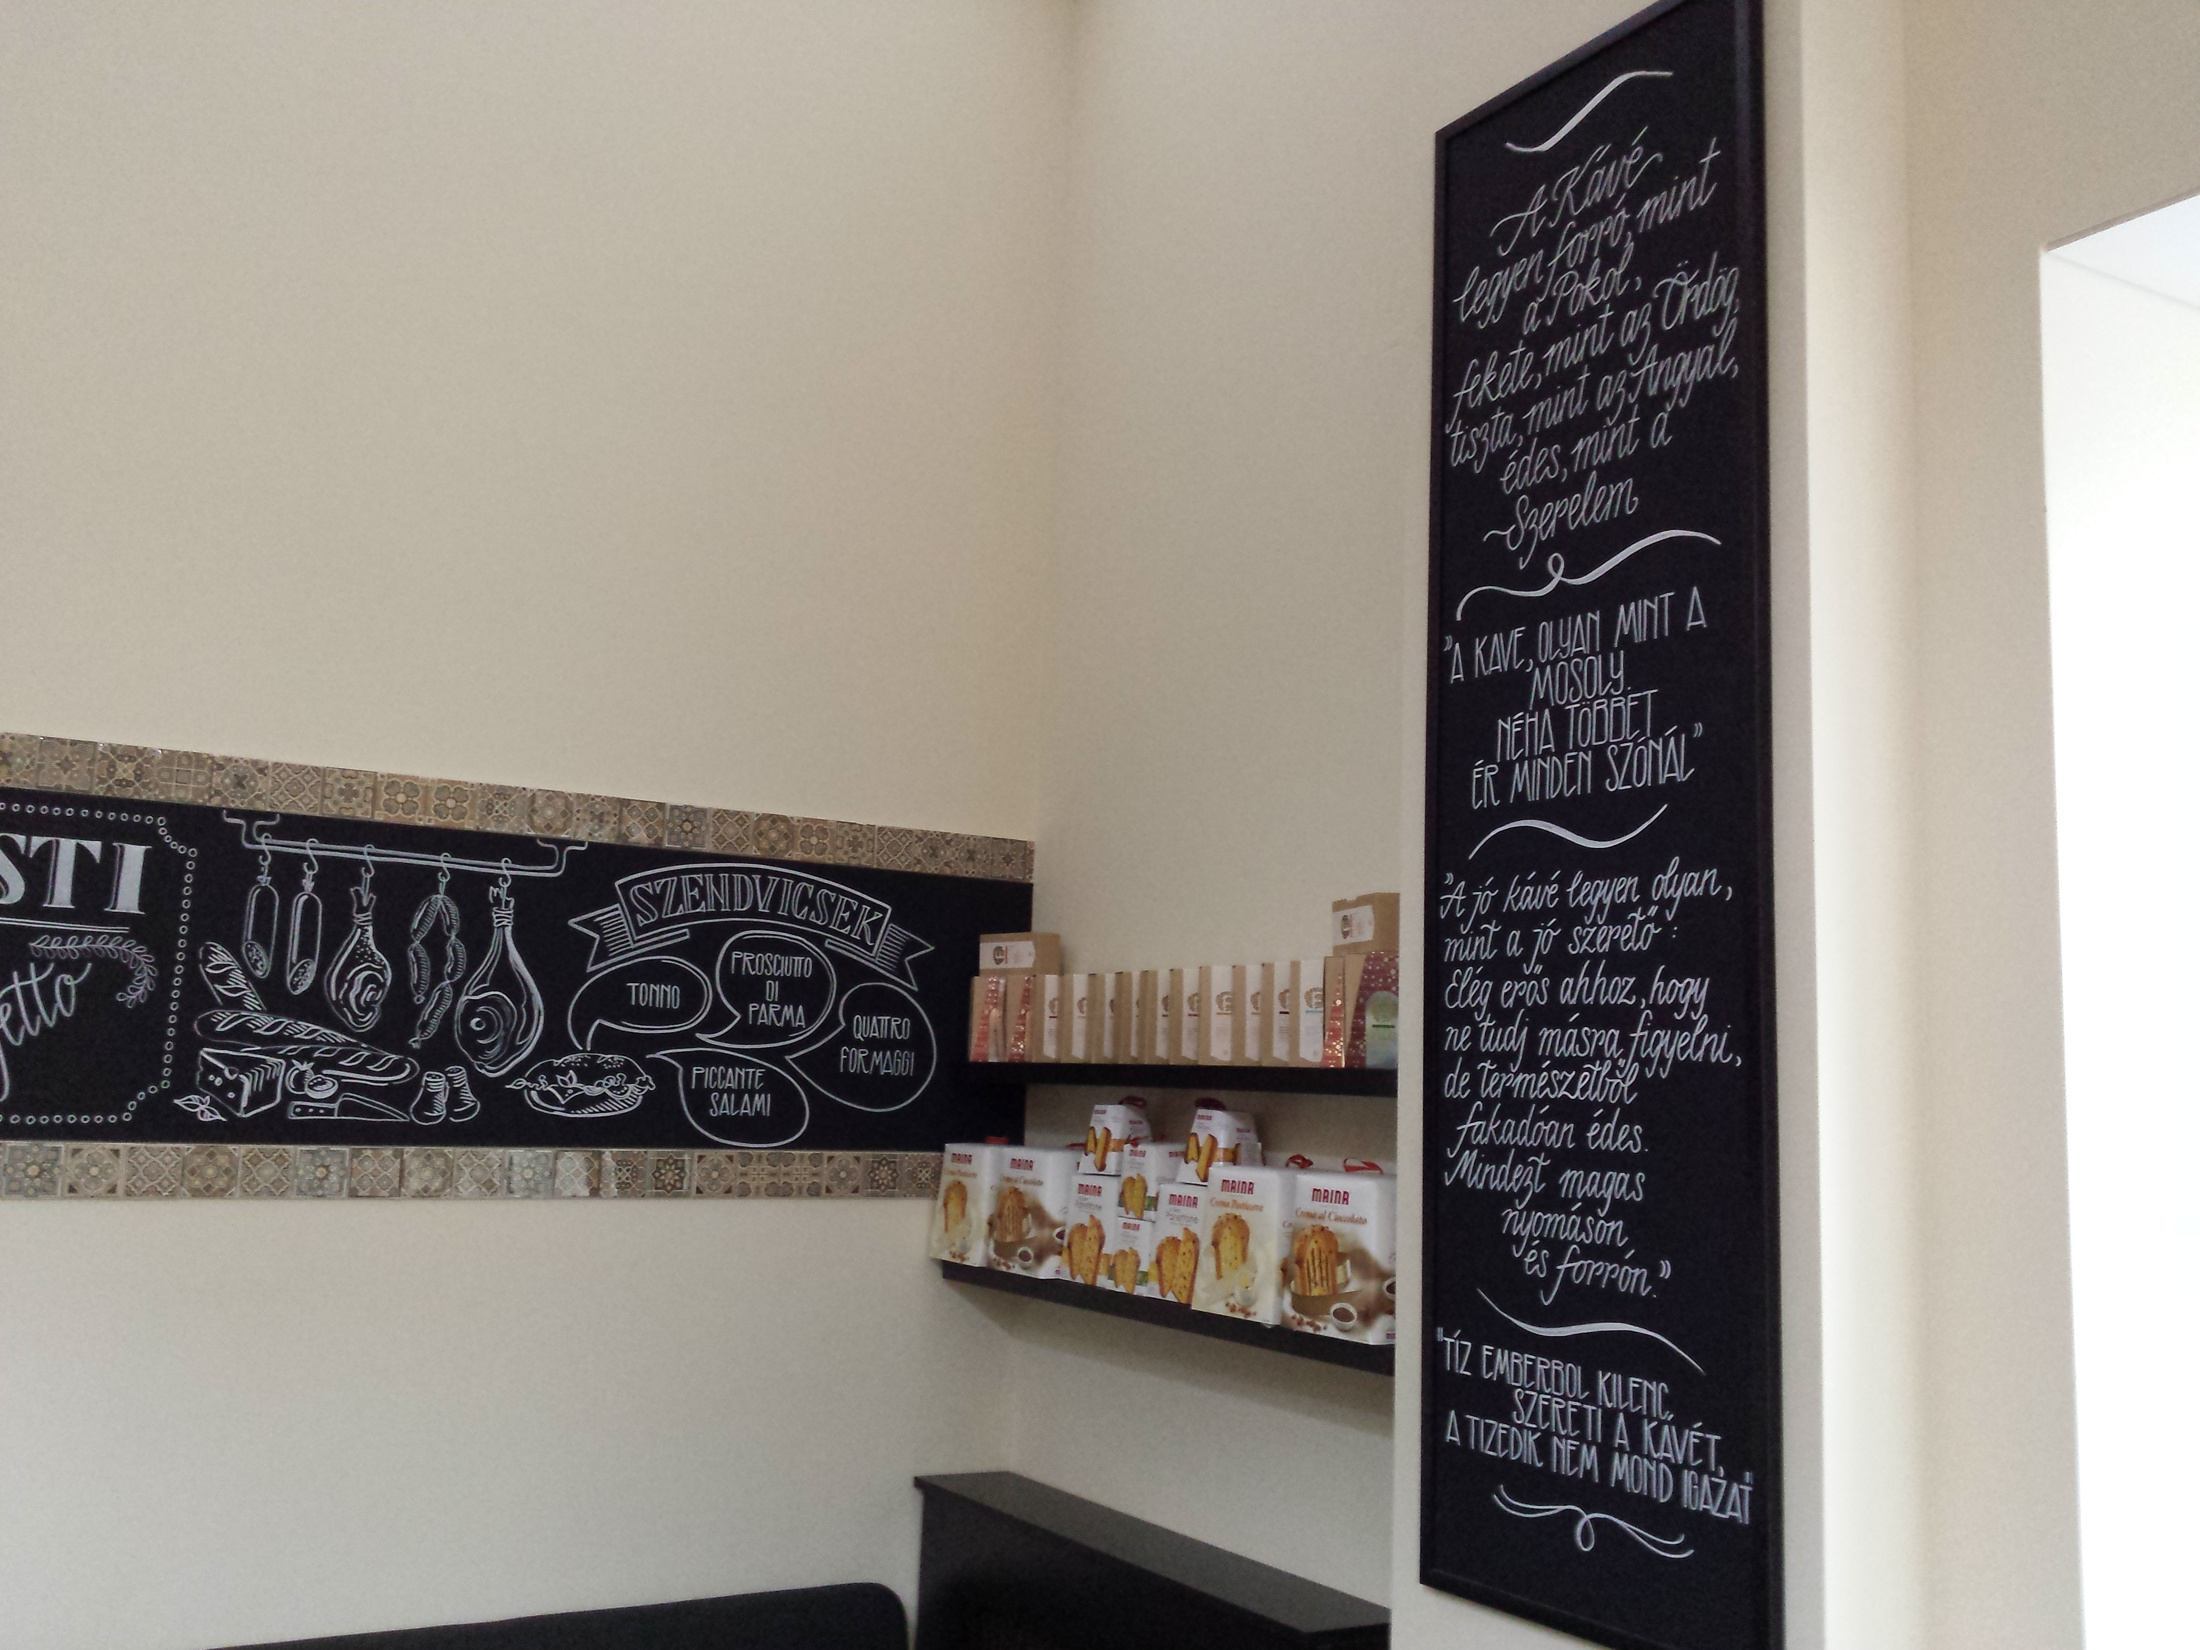 STI
etto
SZENDVICSEK
TONNO
PROSCIUTTO
DI
PARMA
QUATTRO
FORMAGGI
PICCANTE
SALAMI
MAINA
MAINA
MAINA
MAINA
MAINA
MAINA
MAINA
Crema Pasticcera
MAINA
Crema al Cioccolato
A Kávé
legyen forró, mint
a Pokol,
fekete, mint az Ördög,
tiszta, mint az Angyal,
édes, mint a
Szerelem
"A KÁVÉ, OLYAN MINT A
MOSOLY.
NÉHA TÖBBET
ÉR MINDEN SZÓNÁL"
"A jó kávé legyen olyan,
mint a jó szerető:
Elég erős ahhoz, hogy
ne tudj másra figyelni,
de természetből
fakadóan édes.
Mindezt magas
nyomáson
és forrón."
"TÍZ EMBERBŐL KILENC
SZERETI A KÁVÉT,
A TIZEDIK NEM MOND IGAZAT"